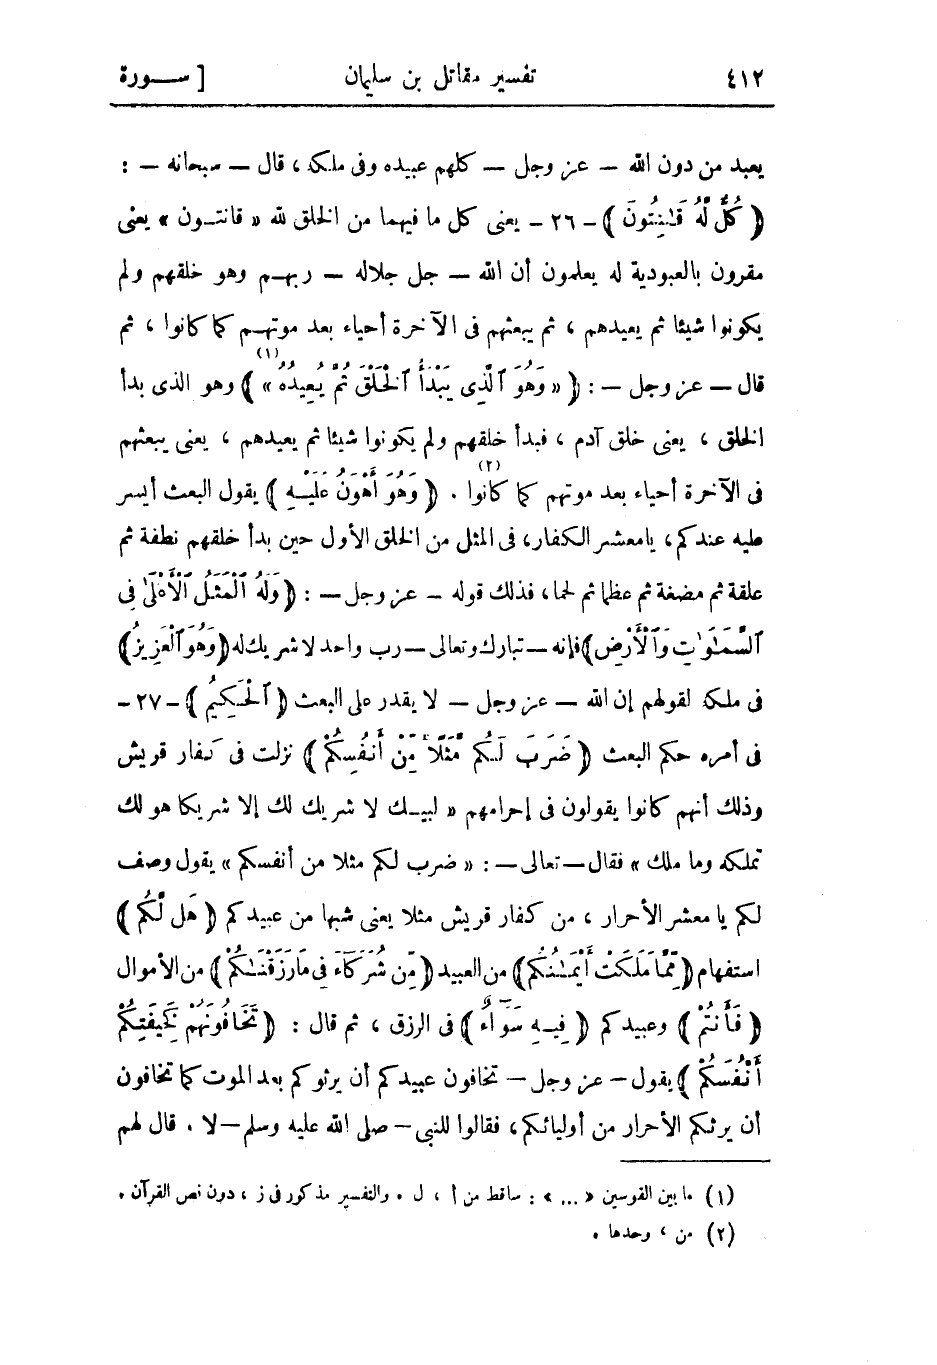 ٤١٢ تفسير مقاتل بن سليمان [ ســـورة
يعبد من دون الله — عز وجل — كلهم عبيده وفى ملكه ، قال — سبحانه — :
﴿ كُلٌّ لَّهُ قَـٰنِتُونَ ﴾ - ٢٦ - يعنى كل ما فيهما من الخلق لله « قانتـون » يعنى
مقرون بالعبودية له يعلمون أن الله — جل جلاله — ربهـم وهو خلقهم ولم
يكونوا شيئا ثم يعيدهم ، ثم يبعثهم فى الآخرة أحياء بعد موتهـم كما كانوا ، ثم
قال — عز وجل — : ﴿ « وَهُوَ ٱلَّذِى يَبْدَأُ ٱلْخَلْقَ ثُمَّ يُعِيدُهُ » (١) ﴾ وهو الذى بدأ
الخلق ، يعنى خلق آدم ، فبدأ خلقهم ولم يكونوا شيئا ثم يعيدهم ، يعنى يبعثهم
فى الآخرة أحياء بعد موتهم كما كانوا (٢) . ﴿ وَهُوَ أَهْوَنُ عَلَيْـهِ ﴾ يقول البعث أيسر
عليه عندكم ، يامعشر الكفار ، فى المثل من الخلق الأول حين بدأ خلقهم نطفة ثم
علقة ثم مضغة ثم عظما ثم لحما ، فذلك قوله - عز وجل — : ﴿ وَلَهُ ٱلْمَثَلُ ٱلْأَعْلَىٰ فِى
ٱلسَّمَـٰوَٰتِ وَٱلْأَرْضِ ﴾ فإنه — تبارك وتعالى — رب واحد لا شريك له ﴿ وَهُوَ ٱلْعَزِيزُ ﴾
فى ملكه لقولهم إن الله — عز وجل — لا يقدر على البعث ﴿ ٱلْحَـكِيمُ ﴾ - ٢٧ -
فى أمره حكم البعث ﴿ ضَرَبَ لَـكُم مَّثَلًا مِّنْ أَنفُسِكُمْ ﴾ نزلت فى كفار قريش
وذلك أنهم كانوا يقولون فى إحرامهم « لبيـك لا شريك لك إلا شريكا هو لك
تملكه وما ملك » فقال — تعالى — : « ضرب لكم مثلا من أنفسكم » يقول وصف
لكم يا معشر الأحرار ، من كفار قريش مثلا يعنى شبها من عبيدكم ﴿ هَل لَّكُم ﴾
استفهام ﴿ مِّمَّا مَلَكَتْ أَيْمَـٰنُكُم ﴾ من العبيد ﴿ مِّن شُرَكَآءَ فِى مَا رَزَقْنَـٰكُمْ ﴾ من الأموال
﴿ فَأَنتُمْ ﴾ وعبيدكم ﴿ فِيـهِ سَوَآءٌ ﴾ فى الرزق ، ثم قال : ﴿ تَخَافُونَهُمْ كَخِيفَتِكُمْ
أَنْفُسَكُمْ ﴾ يقول - عز وجل — تخافون عبيدكم أن يرثوكم بعد الموت كما تخافون
أن يرثكم الأحرار من أوليائكم ، فقالوا للنبى — صلى الله عليه وسلم — لا . قال لهم
(١) ما بين القوسين « ... » : ساقط من أ ، ل . والتفسير مذكور فى ز ، دون نص القرآن .
(٢) من ، وحدها .